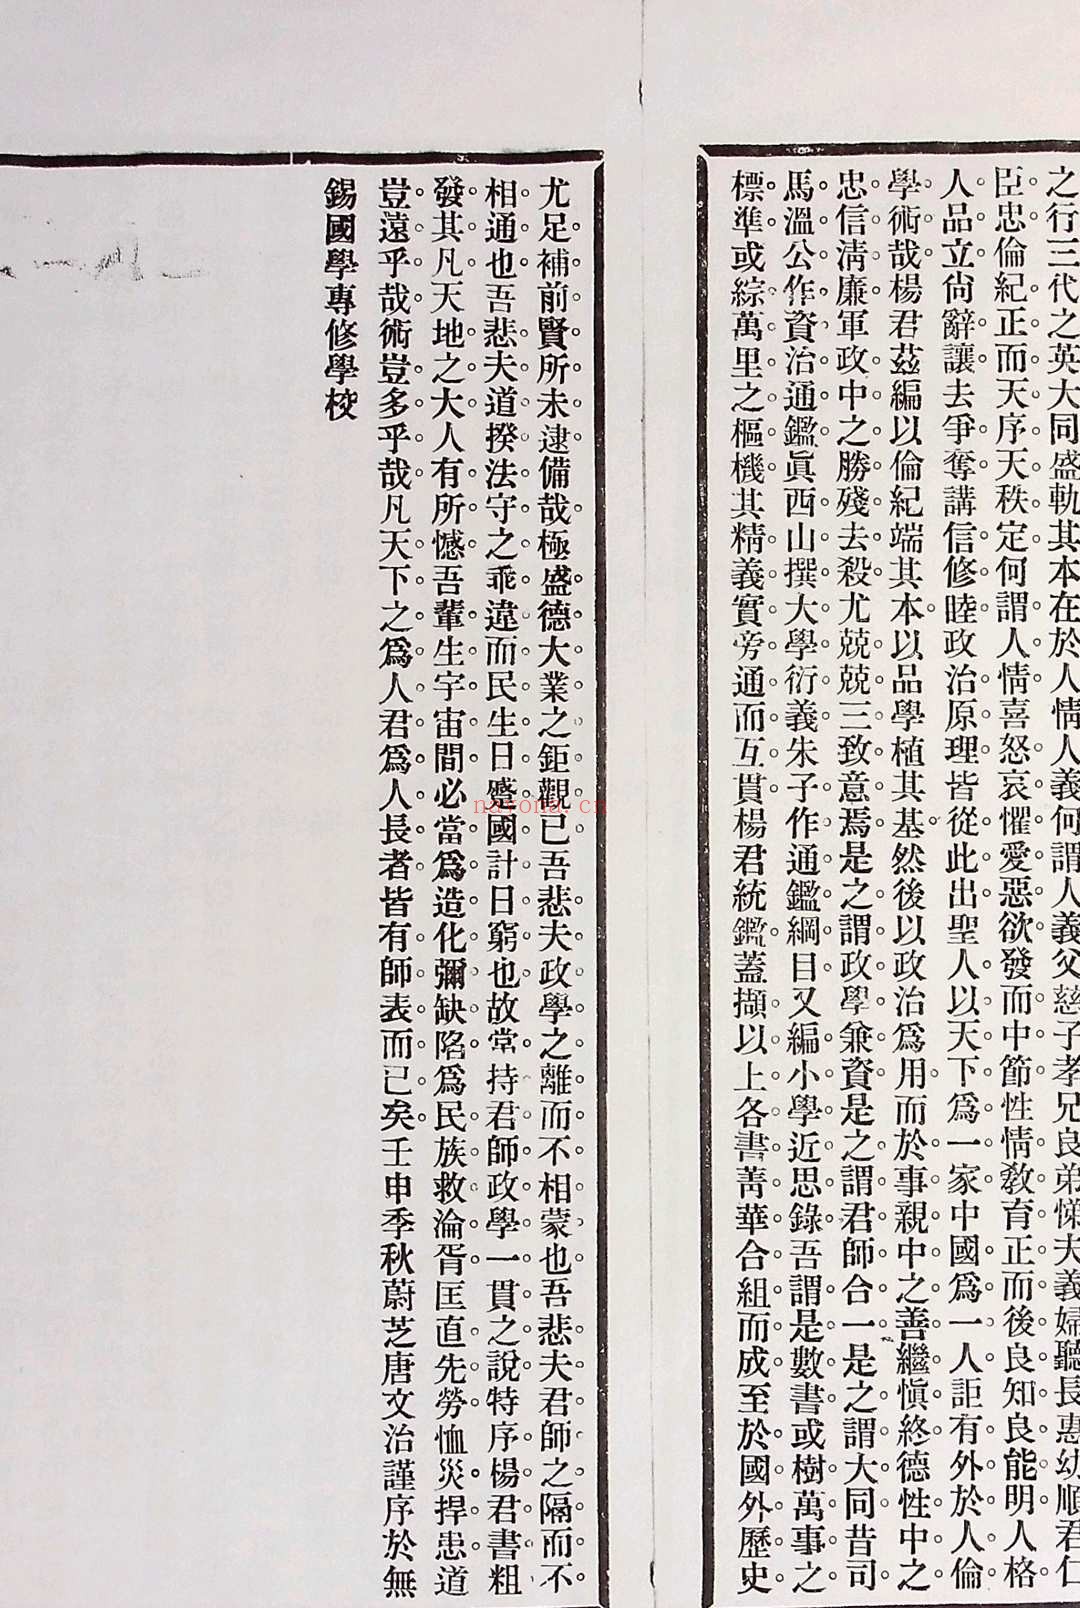 之行三代之英大同盛軌其本在於人情人義何謂人義父慈子孝兄良弟悌夫義婦聽長惠幼順君仁
臣忠倫紀正而天序天秩定何謂人情喜怒哀懼愛惡欲發而中節性情敎育正而後良知良能明人格
人品立尙辭讓去爭奪講信修睦政治原理皆從此出聖人以天下爲一家中國爲一人詎有外於人倫
學術哉楊君茲編以倫紀端其本以品學植其基然後以政治爲用而於事親中之善繼愼終德性中之
忠信淸廉軍政中之勝殘去殺尤兢兢三致意焉是之謂政學兼資是之謂君師合一是之謂大同昔司
馬溫公作資治通鑑眞西山撰大學衍義朱子作通鑑綱目又編小學近思錄吾謂是數書或樹萬事之
標準或綜萬里之樞機其精義實旁通而互貫楊君統鑑蓋擷以上各書菁華合組而成至於國外歷史
尤足補前賢所未逮備哉極盛德大業之鉅觀已吾悲夫政學之離而不相蒙也吾悲夫君師之隔而不
相通也吾悲夫道揆法守之乖違而民生日蹙國計日窮也故常持君師政學一貫之說特序楊君書粗
發其凡天地之大人有所憾吾輩生宇宙間必當爲造化彌缺陷爲民族救淪胥匡直先勞恤災捍患道
豈遠乎哉術豈多乎哉凡天下之爲人君爲人長者皆有師表而已矣壬申季秋蔚芝唐文治謹序於無
錫國學專修學校
nayona.cn